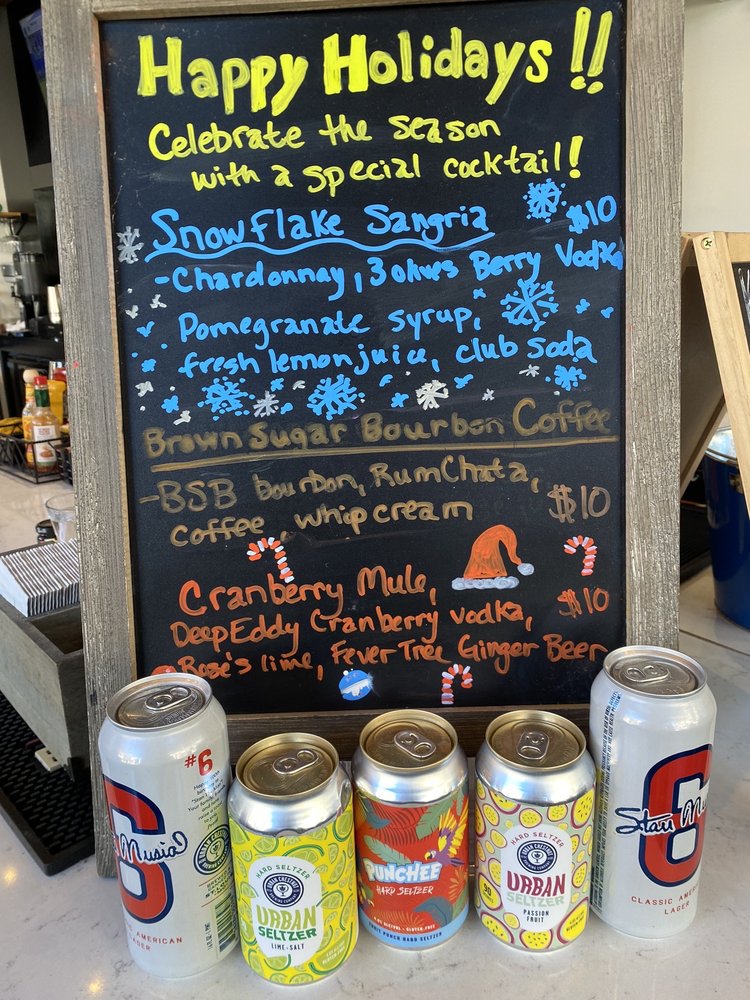 Happy Holidays!!
Celebrate the season
with a special cocktail!
Snowflake Sangria $10
-Chardonnay, 3 olives Berry Vodka
Pomegranate syrup,
fresh lemon juice, club soda
Brown Sugar Bourbon Coffee
-BSB bourbon, RumChata, $10
coffee, whip cream
Cranberry Mule, $10
Deep Eddy Cranberry vodka,
Rose's lime, Fever Tree Ginger Beer
#6
6
Musial
AMERICAN
LAGER
HARD SELTZER
URBAN CHESTNUT
URBAN
SELTZER
LIME-SALT
PUNCHEE
HARD SELTZER
FRUIT PUNCH HARD SELTZER
HARD SELTZER
URBAN
SELTZER
PASSION
FRUIT
90
6
Stan Mus
CLASSIC AMER
LAGER